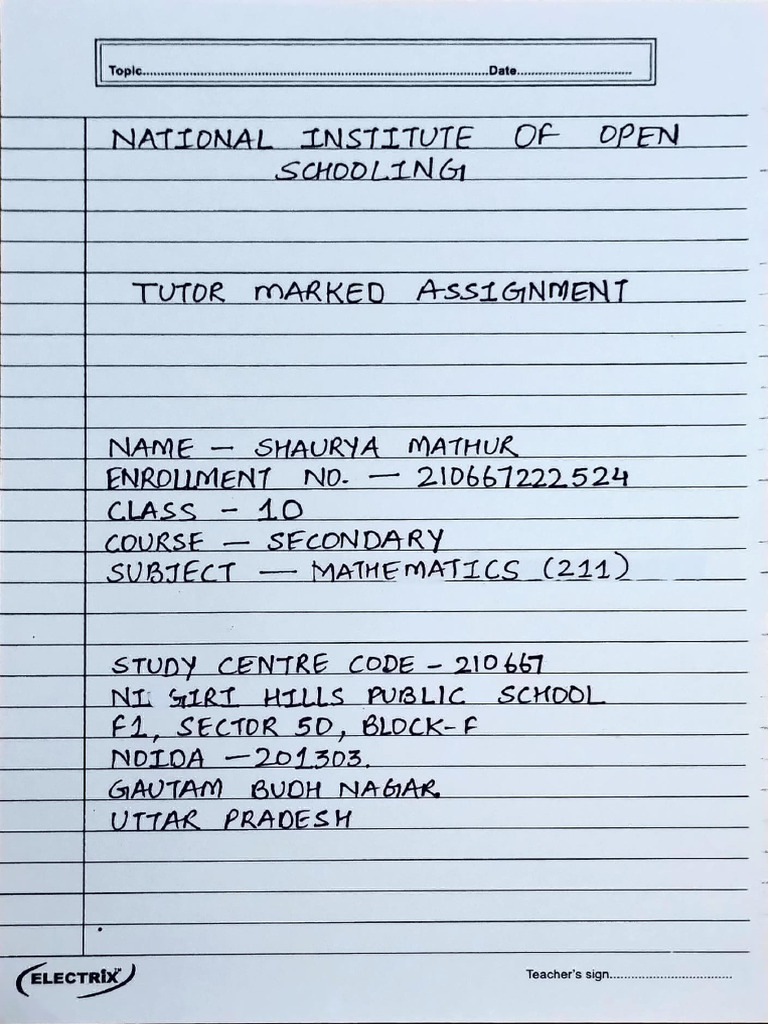 Topic..........................................................................................Date................................
NATIONAL INSTITUTE OF OPEN
SCHOOLING
TUTOR MARKED ASSIGNMENT
NAME – SHAURYA MATHUR
ENROLLMENT NO. – 210667222524
CLASS – 10
COURSE – SECONDARY
SUBJECT – MATHEMATICS (211)
STUDY CENTRE CODE – 210667
GIRI HILLS PUBLIC SCHOOL
F1, SECTOR 50, BLOCK-F
NOIDA – 201303.
GAUTAM BUDH NAGAR
UTTAR PRADESH
ELECTRiX
Teacher's sign..................................